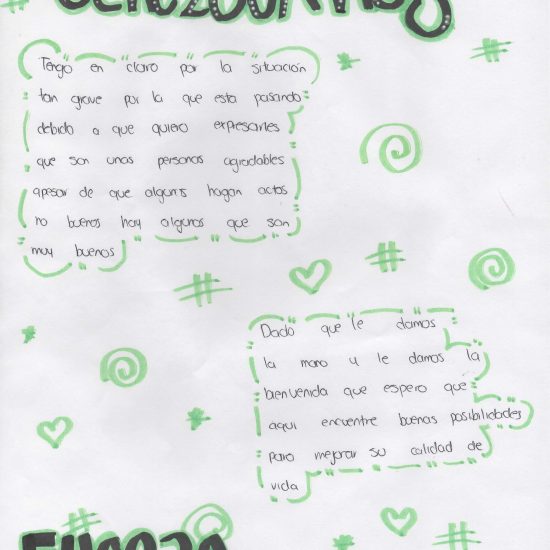 Tengo en claro por la situación
tan grave por la que esta pasando
debido a que quiero expresarles
que son unas personas agradables
apesar de que algunos hagan actos
no buenos hay algunos que son
muy buenos
Dado que le damos
la mano y le damos la
bienvenida que espero que
aqui encuentre buenas posibilidades
para mejorar su calidad de
vida